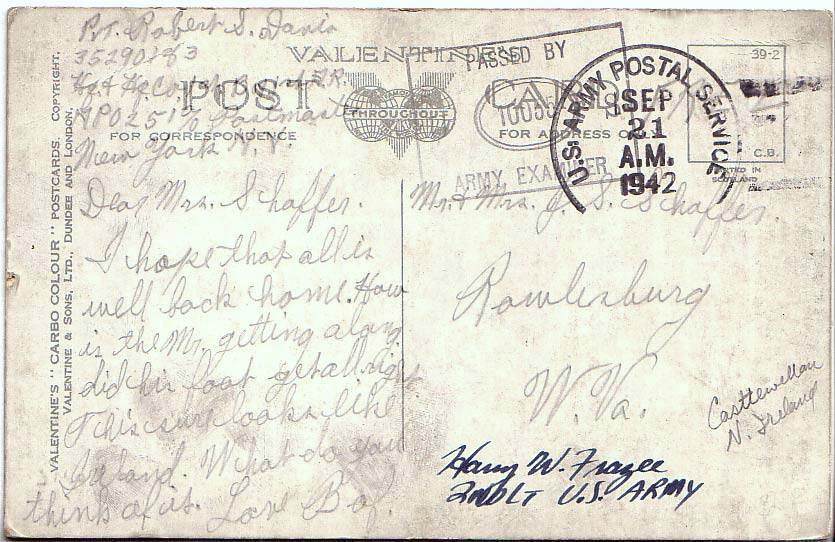 Pvt. Robert S. Davis
35290183
New York N.Y.
VALENTINE'S
POST CARD
THROUGHOUT
FOR CORRESPONDENCE
FOR ADDRESS ONLY
PASSED BY
ARMY EXAMINER
U.S. ARMY POSTAL SERVICE
SEP
21
A.M.
1942
39-2
C.B.
PRINTED IN
SCOTLAND
VALENTINE'S "CARBO COLOUR" POSTCARDS. COPYRIGHT.
VALENTINE & SONS, LTD., DUNDEE AND LONDON.
Dear Mrs. Schaffer.
I hope that all is
well back home. How
is the Mr. getting along
did his foot get allright
This sure looks like
Ireland. What do you
think of it. Love Bob.
Mr. & Mrs. J. S. Schaffer.
Rowlesburg
W. Va.
Casttewellan
N. Ireland
Harry W. Frazee
2nd Lt U.S. ARMY